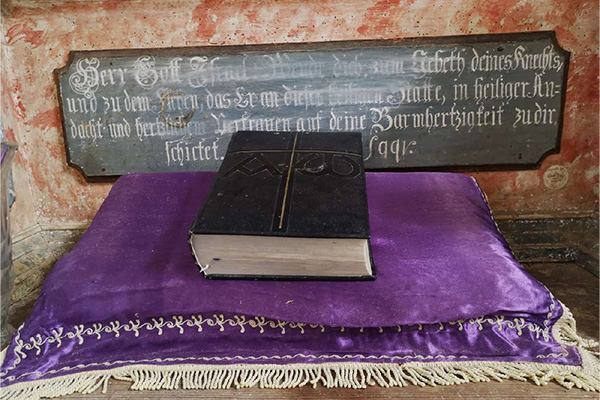 Herr Gott Israel Wende dich zum Gebeth deines Knechts,
und zu dem Flehen, das Er an dieser heiligen Statte, in heiliger An-
dacht und hertzlichem Vertrauen auf deine Barmhertzigkeit zu dir
schicket.